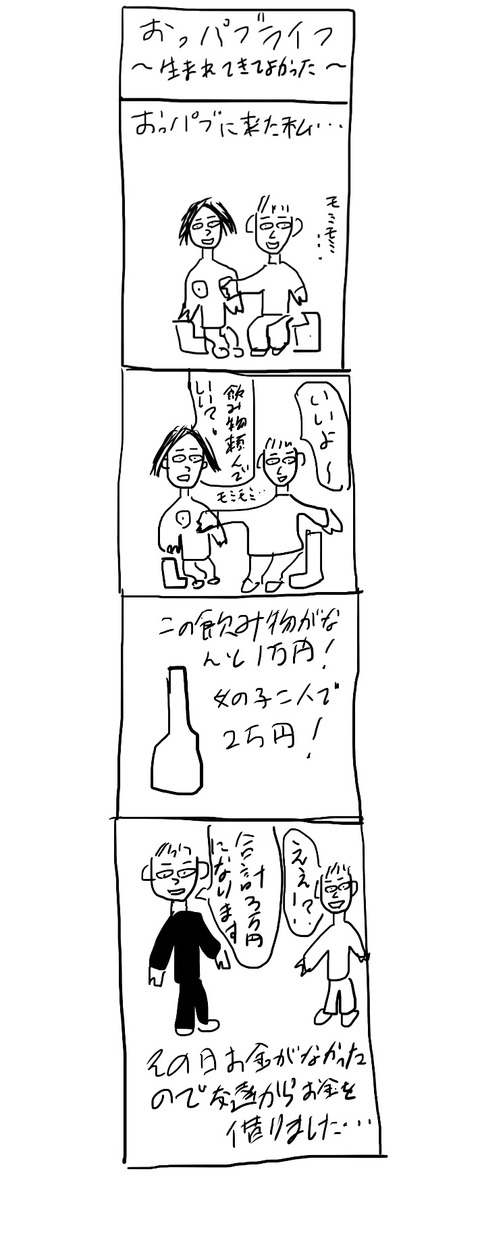 おっパブライフ
～生まれてきてよかった～
おっパブに来た私…
モミモミ…
飲み物頼んで
いい？
いいよ～
モミモミ…
この飲み物がな
んと1万円！
女の子二人で
2万円！
合計3万円
になります
ええー！？
その日お金がなかった
ので友達からお金を
借りました…